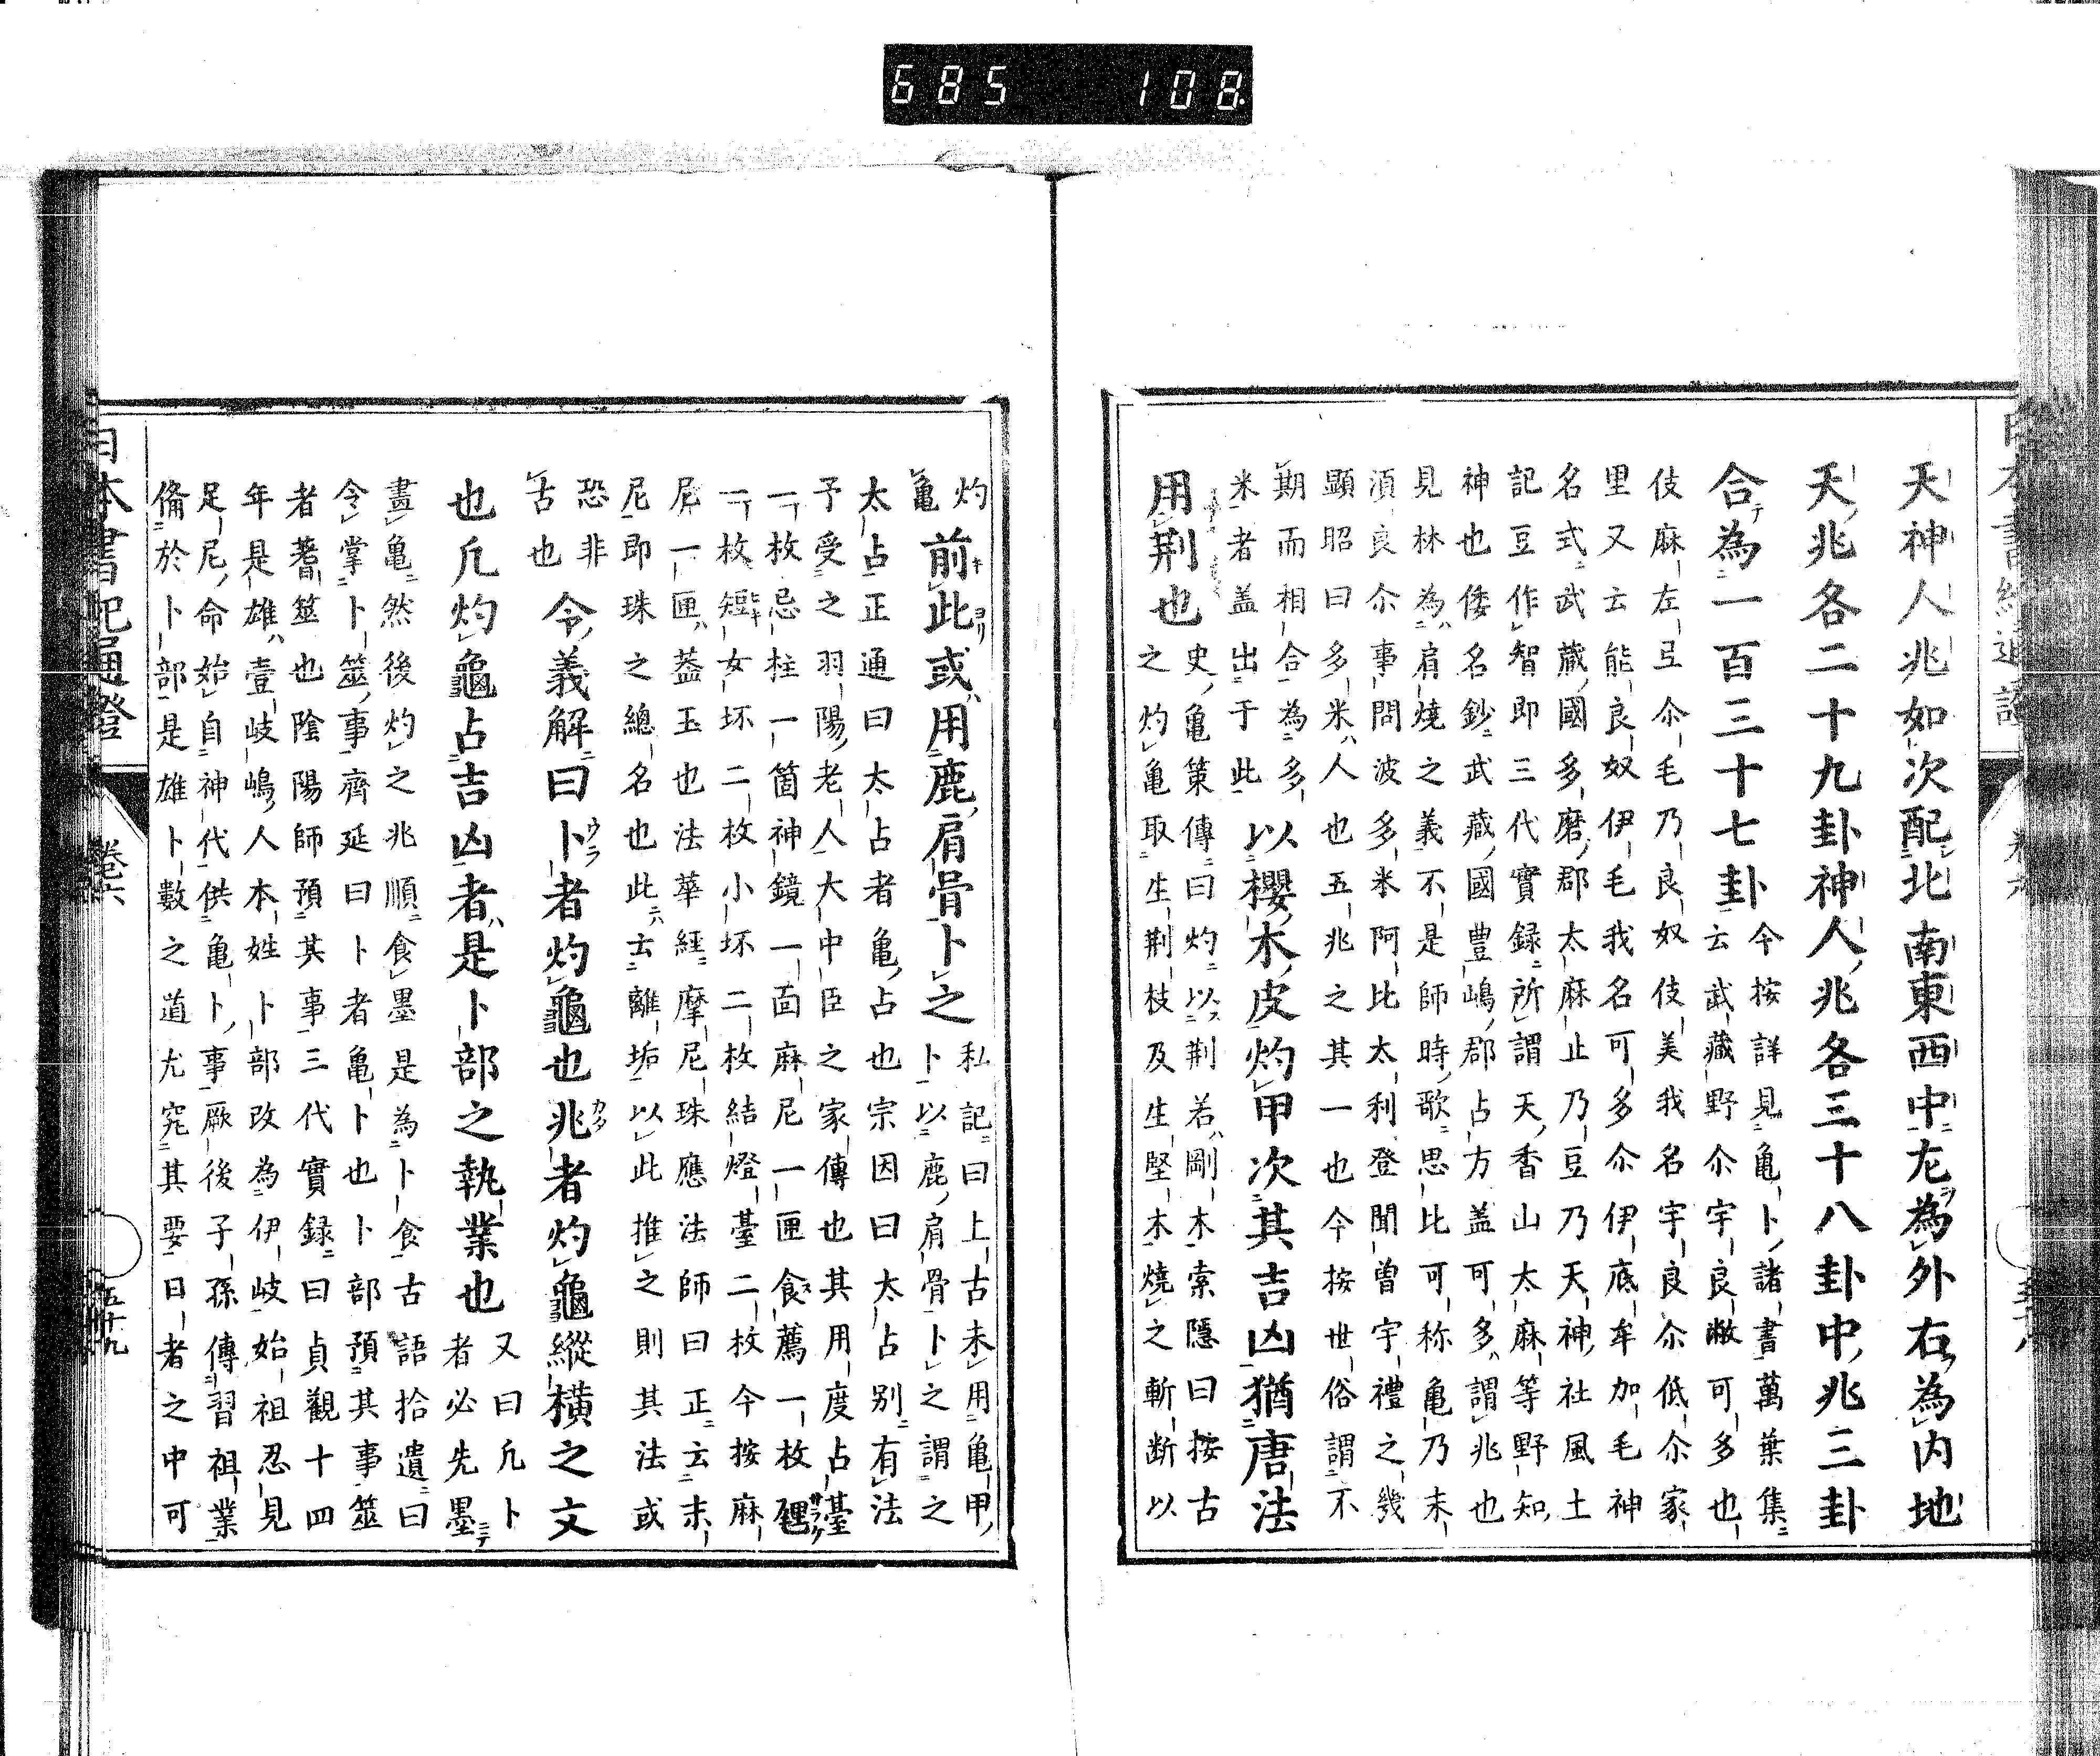 685 108
天神人兆如次配北南東西中左為外右為内地
天兆各二十九卦神人兆各三十八卦中兆三卦
合為一百三十七卦
今按詳見亀卜諸書萬葉集
云武藏野尒宇良敝可多也
伎麻左弖尒毛乃良奴伎美我名宇良尒低尒家
里又云能良奴伊毛我名可多尒伊底牟加毛神
名式武藏國多磨郡太麻止乃豆乃天神社風土
記豆作智即三代實録所謂天香山太麻等野知
神也倭名鈔武藏國豊嶋郡占方盖可多謂兆也
見林為肩燒之義不是師時歌思比可称亀乃末
湏良尒事問波多米阿比太利登聞曽宇禮之幾
顯昭曰多米人也五兆之其一也今按世俗謂不
期而相合為多
米者盖出于此
以櫻木皮灼甲次其吉凶猶唐法
用荆也
史亀策傳曰灼以荆若剛木索隱曰按古
之灼亀取生荆枝及生堅木燒之斬断以
灼
亀
前此或用鹿肩骨卜之
私記曰上古未用亀甲
卜以鹿肩骨卜之謂之
太占正通曰太占者亀占也宗因曰太占别有法
予受之羽陽老人大中臣之家傳也其用度占臺
一枚忌柱一箇神鏡一面麻尼一匣食薦一枚
二枚短女坏二枚小坏二枚結燈臺二枚今按麻
尼一匣盖玉也法華經摩尼珠應法師曰正云末
尼即珠之總名也此云離垢以此推之則其法或
恐非
古也
令義解曰卜者灼龜也兆者灼龜縱橫之文
也凢灼龜占吉凶者是卜部之執業也
又曰凢卜
者必先墨
畫亀然後灼之兆順食墨是為卜食古語拾遺曰
令掌卜筮事齊延曰卜者亀卜也卜部預其事筮
者蓍筮也陰陽師預其事三代實録曰貞觀十四
年是雄壹岐嶋人本姓卜部改為伊岐始祖忍見
足尼命始自神代供亀卜事厥後子孫傳習祖業
俻於卜部是雄卜數之道尤究其要日者之中可
日本書紀通證
卷六
五十九